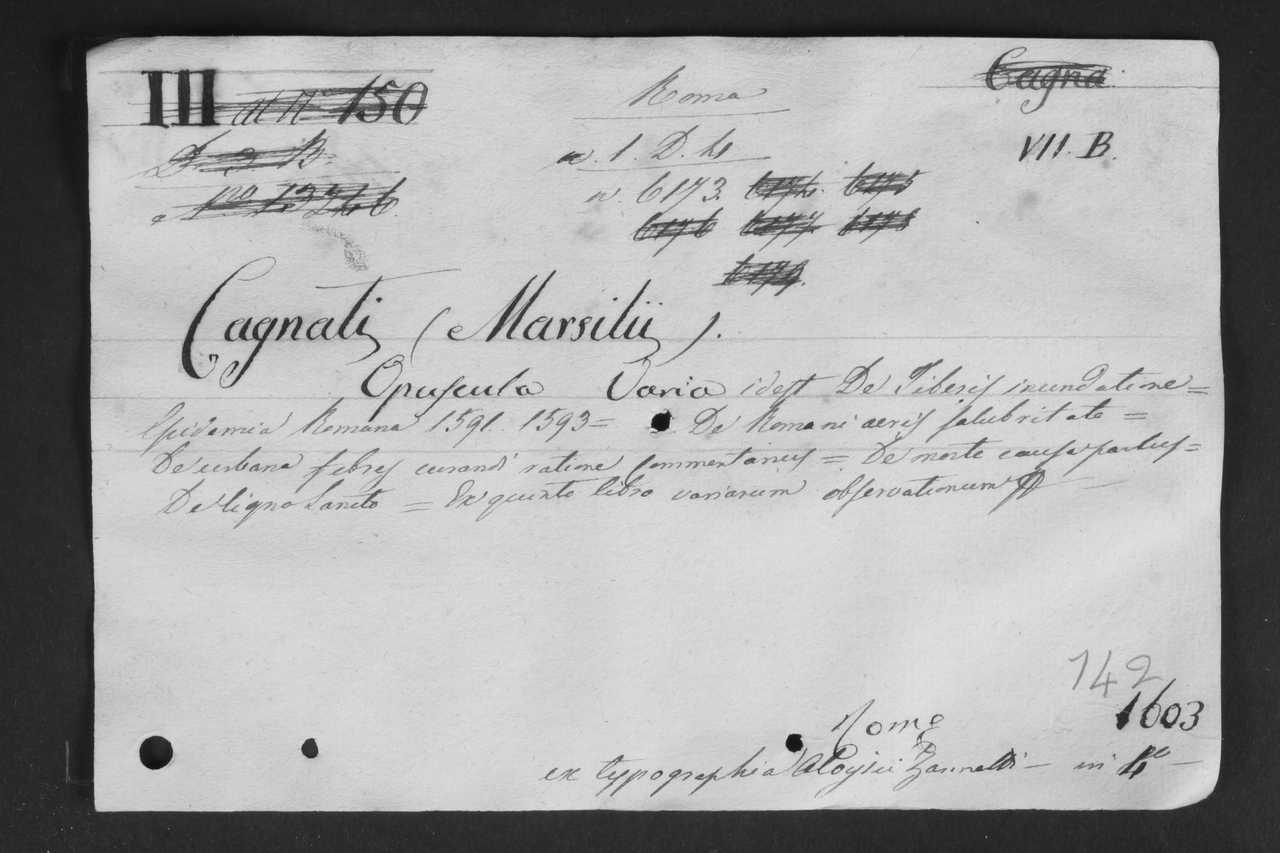 III al N.º 150
Roma
Cagna
D. 3. B.
a. 1. D. 4
VII. B.
1346
n. 6173. 6174. 6175
6176 6177 6178
6179.
Cagnati (Marsilii).
Opuscula Varia idest De Tiberis inundatione =
Epidemia Romana 1591. 1593 = De Romani aeris salubritate =
De urbana febres curandi ratione Commentarius = De morte causa partus =
De ligno Sancto = Ex quinto libro variarum observationum
142
Rome
1603
ex typographia Aloysii Zannetti in 4º